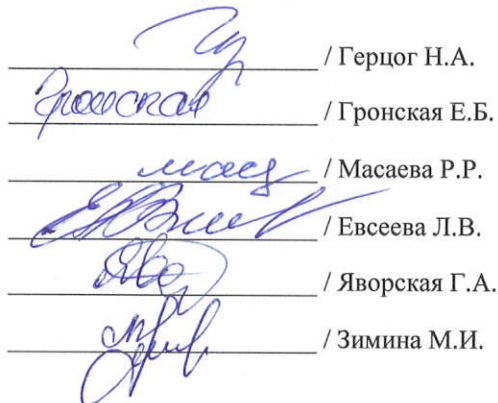 / Герцог Н.А.
Гронская / Гронская Е.Б.
/ Масаева Р.Р.
/ Евсеева Л.В.
/ Яворская Г.А.
/ Зимина М.И.